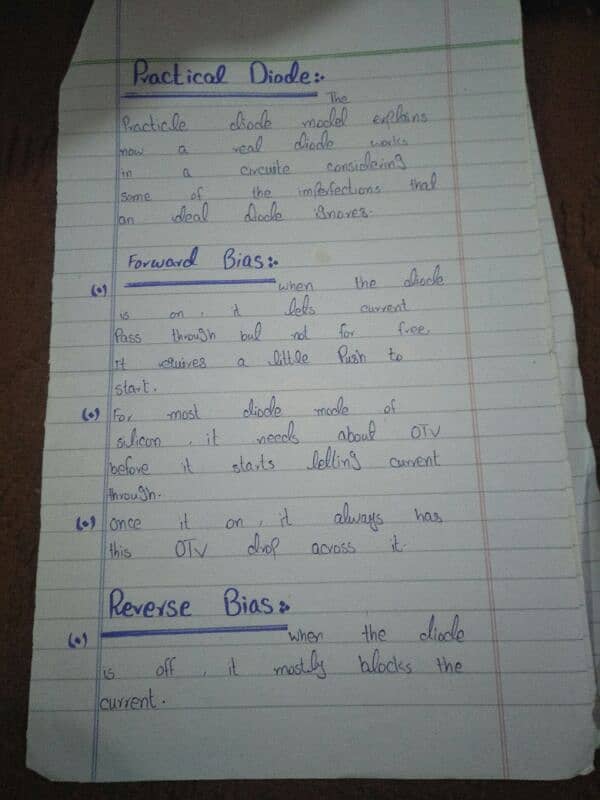 Practical Diode:-
The
Practicle diode model explains
how a real diode works
in a circuite consideing
some of the imperfections that
an ideal diode ignores.
Forward Bias:-
(o) when the diode
is on, it lets current
Pass through but not for free.
it requires a little Push to
start.
(o) For most diode made of
silicon, it needs about 0.7V
before it starts letting current
through.
(o) once it on, it always has
this 0.7V drop across it.
Reverse Bias:-
(o) when the diode
is off, it mostly blocks the
current.